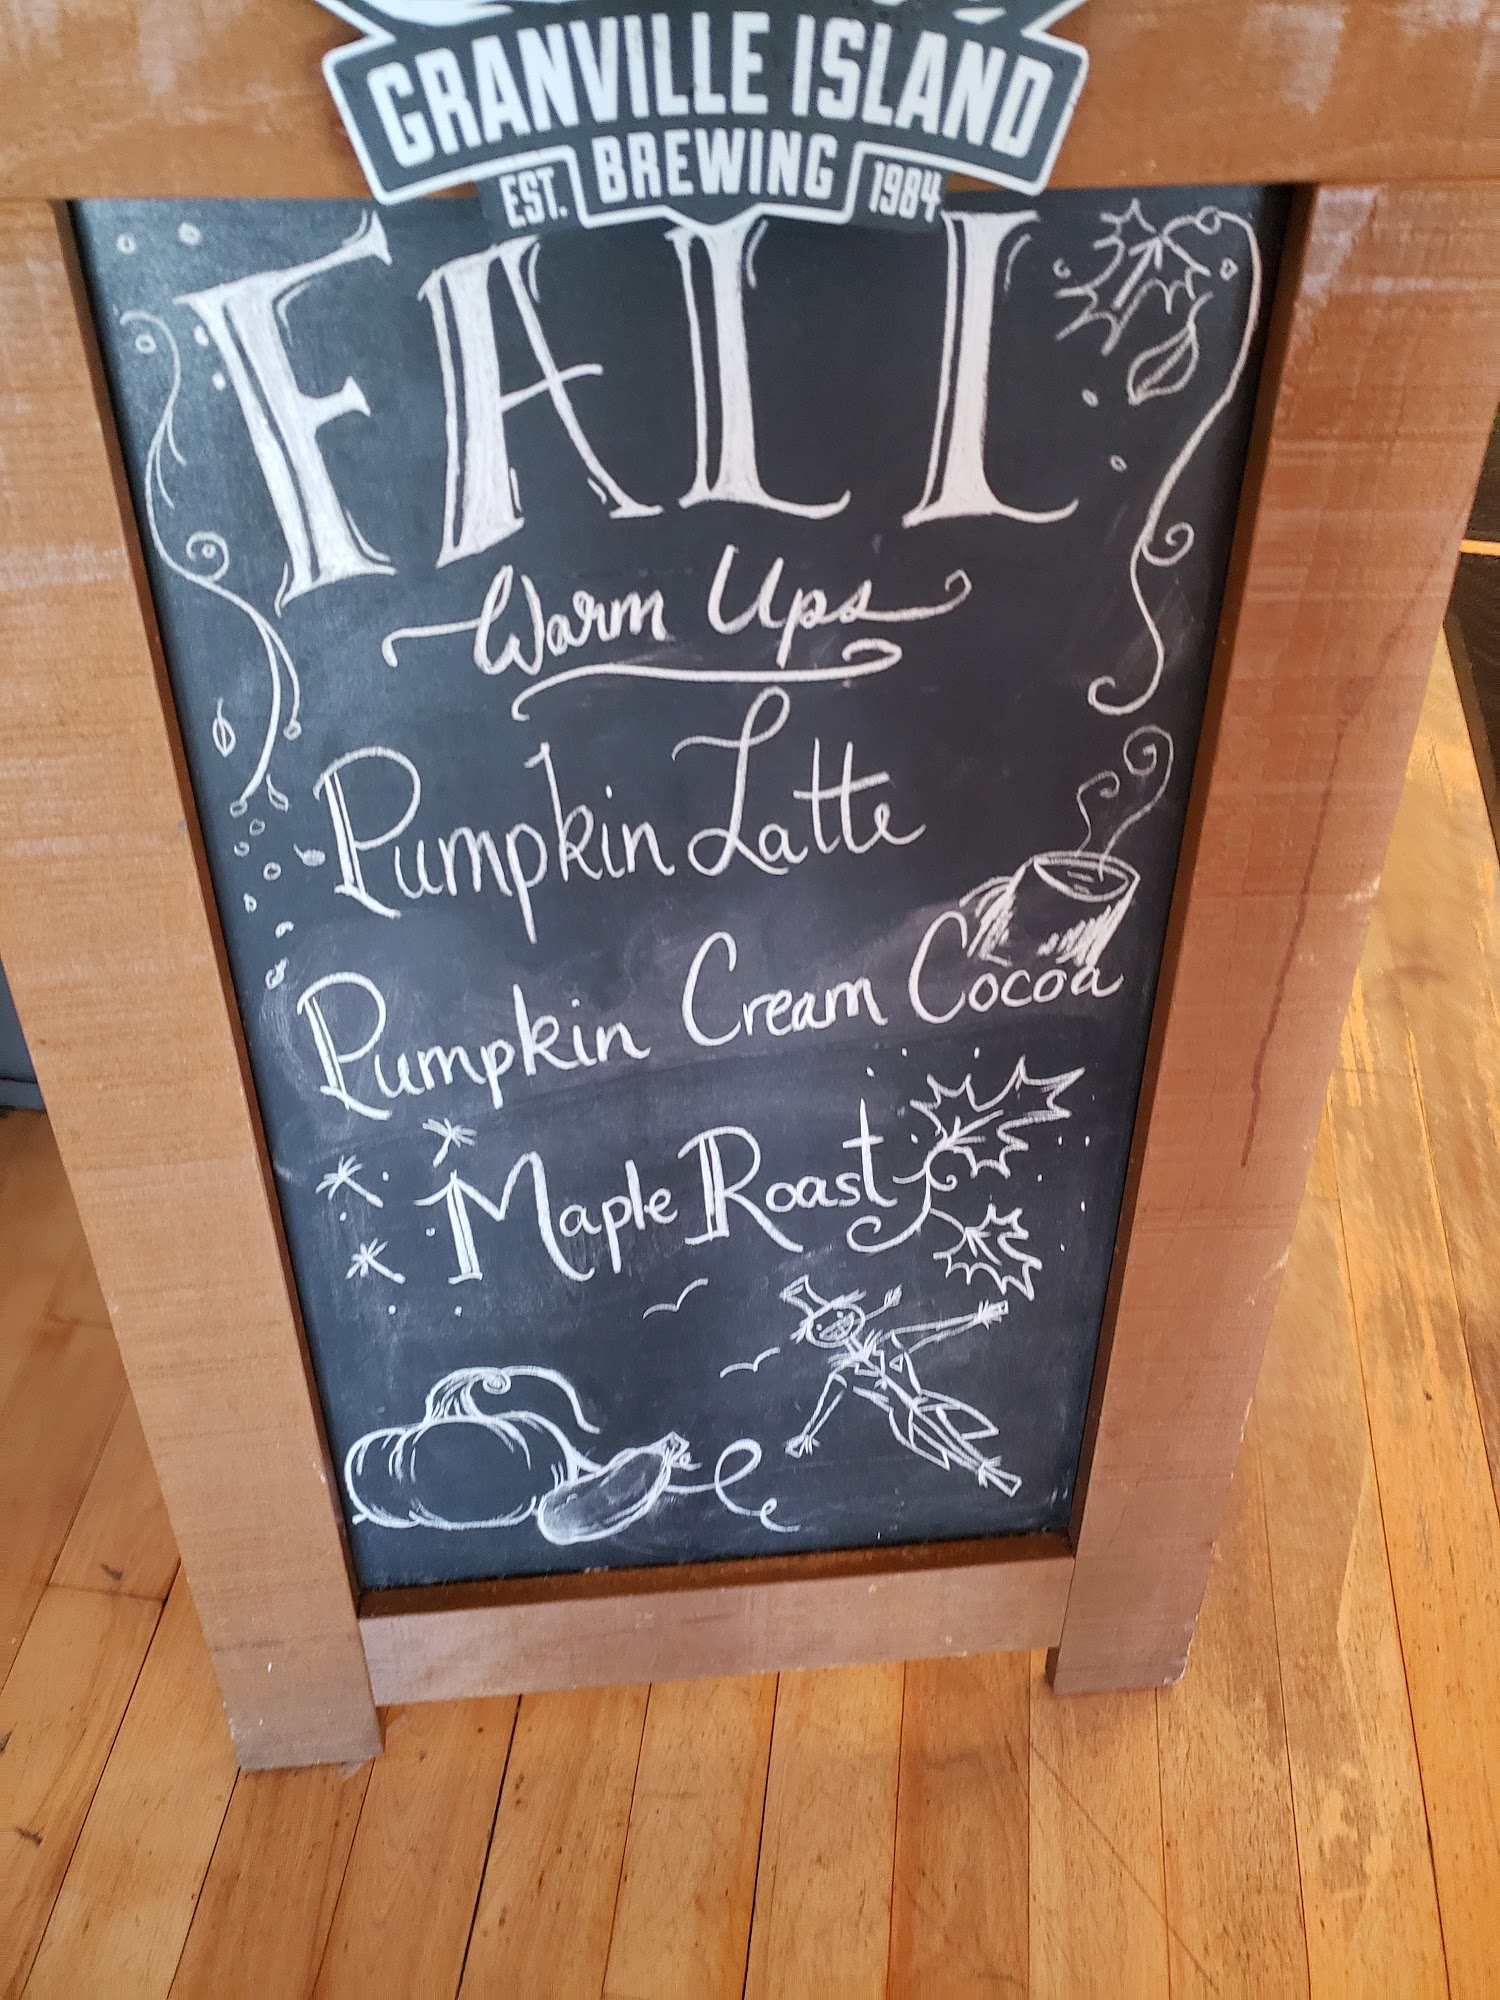 GRANVILLE ISLAND
EST. BREWING 1984
FALL
Warm Ups
Pumpkin Latte
Pumpkin Cream Cocoa
Maple Roast